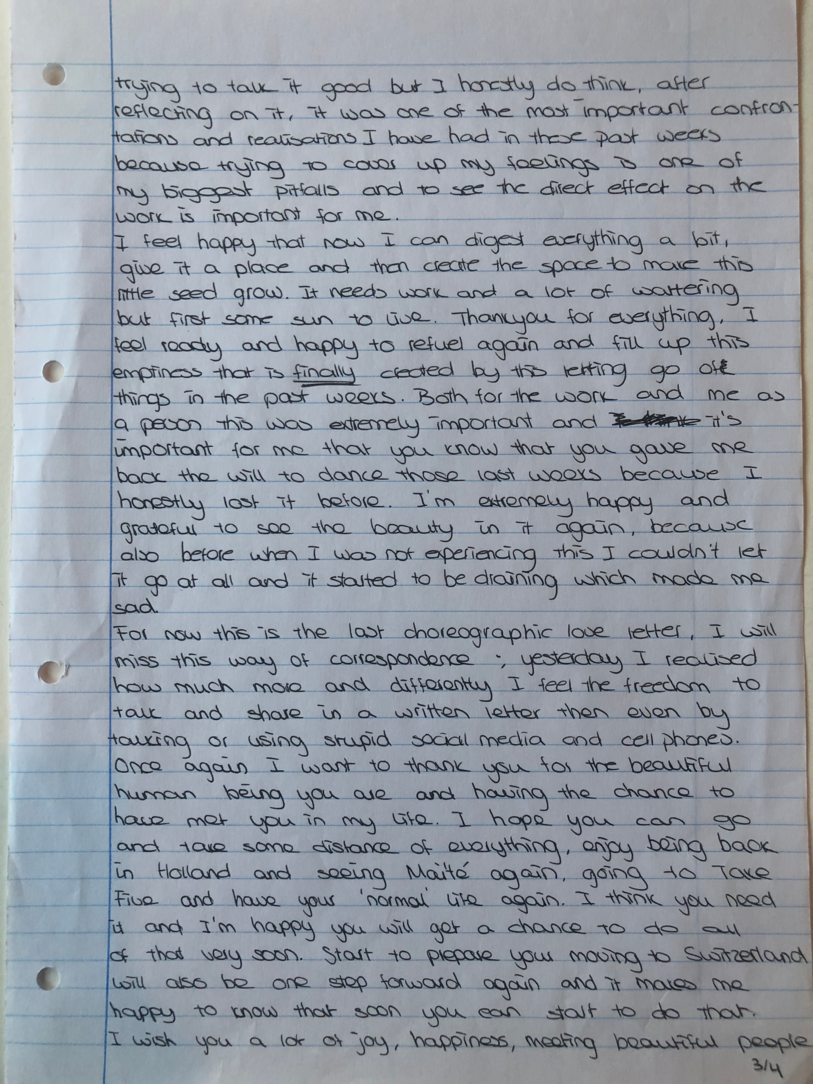 trying to talk it good but I honestly do think, after
reflecting on it, it was one of the most important confron-
tations and realisations I have had in these past weeks
because trying to cover up my feelings is one of
my biggest pitfalls and to see the direct effect on the
work is important for me.
I feel happy that now I can digest everything a bit,
give it a place and then create the space to make this
little seed grow. It needs work and a lot of wattering
but first some sun to live. Thankyou for everything, I
feel ready and happy to refuel again and fill up this
emptiness that is finally created by this letting go of
things in the past weeks. Both for the work and me as
a person this was extremely important and it's
important for me that you know that you gave me
back the will to dance those last weeks because I
honestly lost it before. I'm extremely happy and
grateful to see the beauty in it again, because
also before when I was not experiencing this I couldn't let
it go at all and it started to be draining which made me
sad.
For now this is the last choreographic love letter, I will
miss this way of correspondence ; yesterday I realised
how much more and differently I feel the freedom to
talk and share in a written letter then even by
talking or using stupid social media and cell phones.
Once again I want to thank you for the beautiful
human being you are and having the chance to
have met you in my life. I hope you can go
and take some distance of everything, enjoy being back
in Holland and seeing Maïté again, going to Take
Five and have your 'normal' life again. I think you need
it and I'm happy you will get a chance to do all
of that very soon. Start to prepare your moving to Switzerland
will also be one step forward again and it makes me
happy to know that soon you can start to do that.
I wish you a lot of joy, happiness, meeting beautiful people
3/4